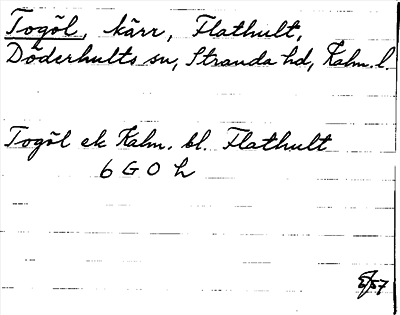 Togöl, kärr, Flathult,
Döderhults sn, Stranda hd, Kalm. l.
Togöl ek Kalm. bl. Flathult
6 G 0 h
/57